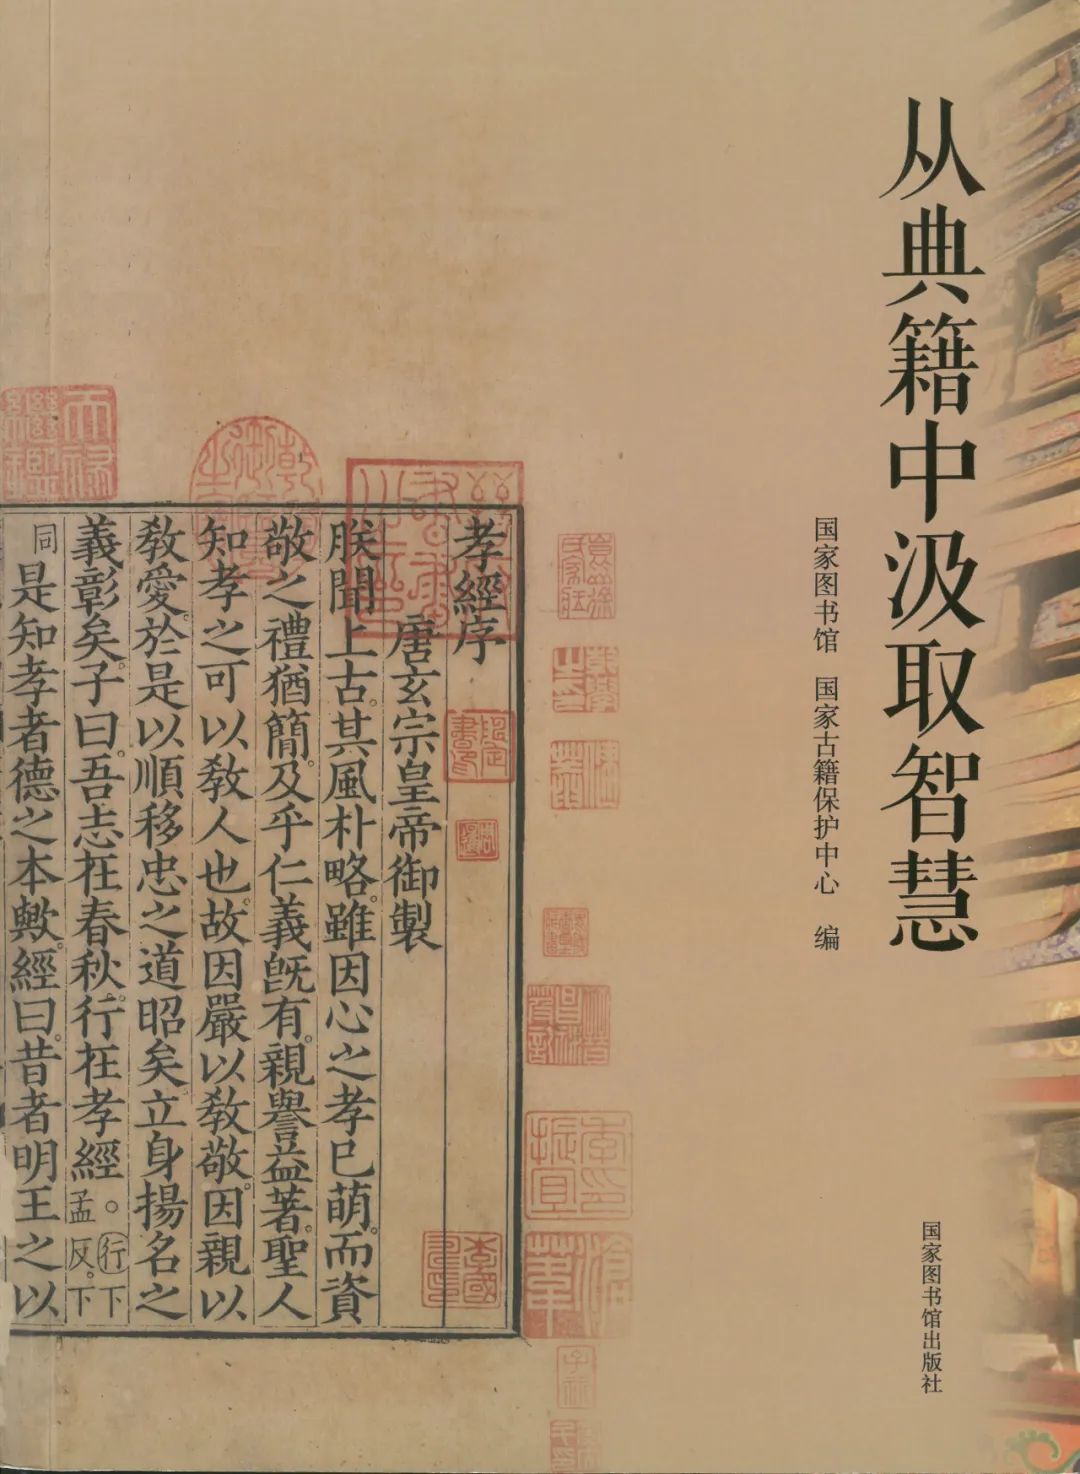 从典籍中汲取智慧
国家图书馆 国家古籍保护中心 编
国家图书馆出版社
孝經序
唐玄宗皇帝御製
朕聞上古其風朴略雖因心之孝已萌而資
敬之禮猶簡及乎仁義旣有親譽益著聖人
知孝之可以敎人也故因嚴以敎敬因親以
敎愛於是以順移忠之道昭矣立身揚名之
義彰矣子曰吾志在春秋行在孝經。行下孟反下
同是知孝者德之本歟經曰昔者明王之以